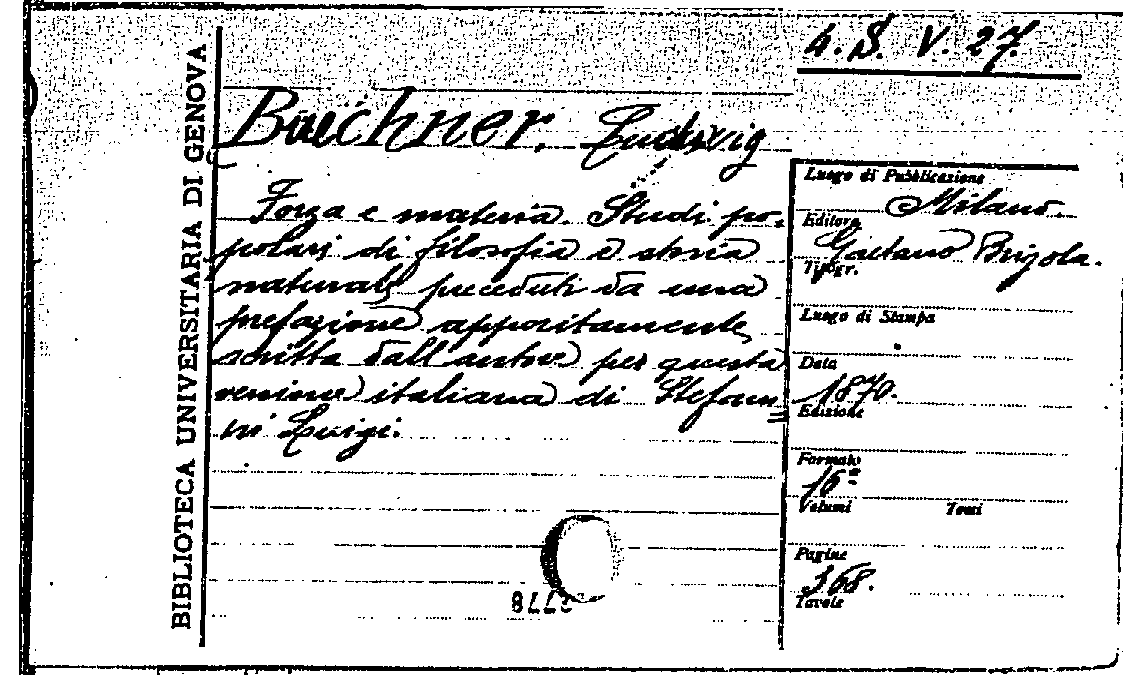 4. S. V. 27.
BIBLIOTECA UNIVERSITARIA DI GENOVA
Buechner, Ludwig
Forza e materia. Studi po-
polari di filosofia e storia
naturale preceduti da una
prefazione appositamente
scritta dall'autore per questa
versione italiana di Stefan=
ni Luigi.
Luogo di Pubblicazione
Milano.
Editore
Gaetano Brigola.
Tipogr.
Luogo di Stampa
Data
1870.
Edizione
Formato
16º
Volumi Tomi
Pagine
368.
Tavole